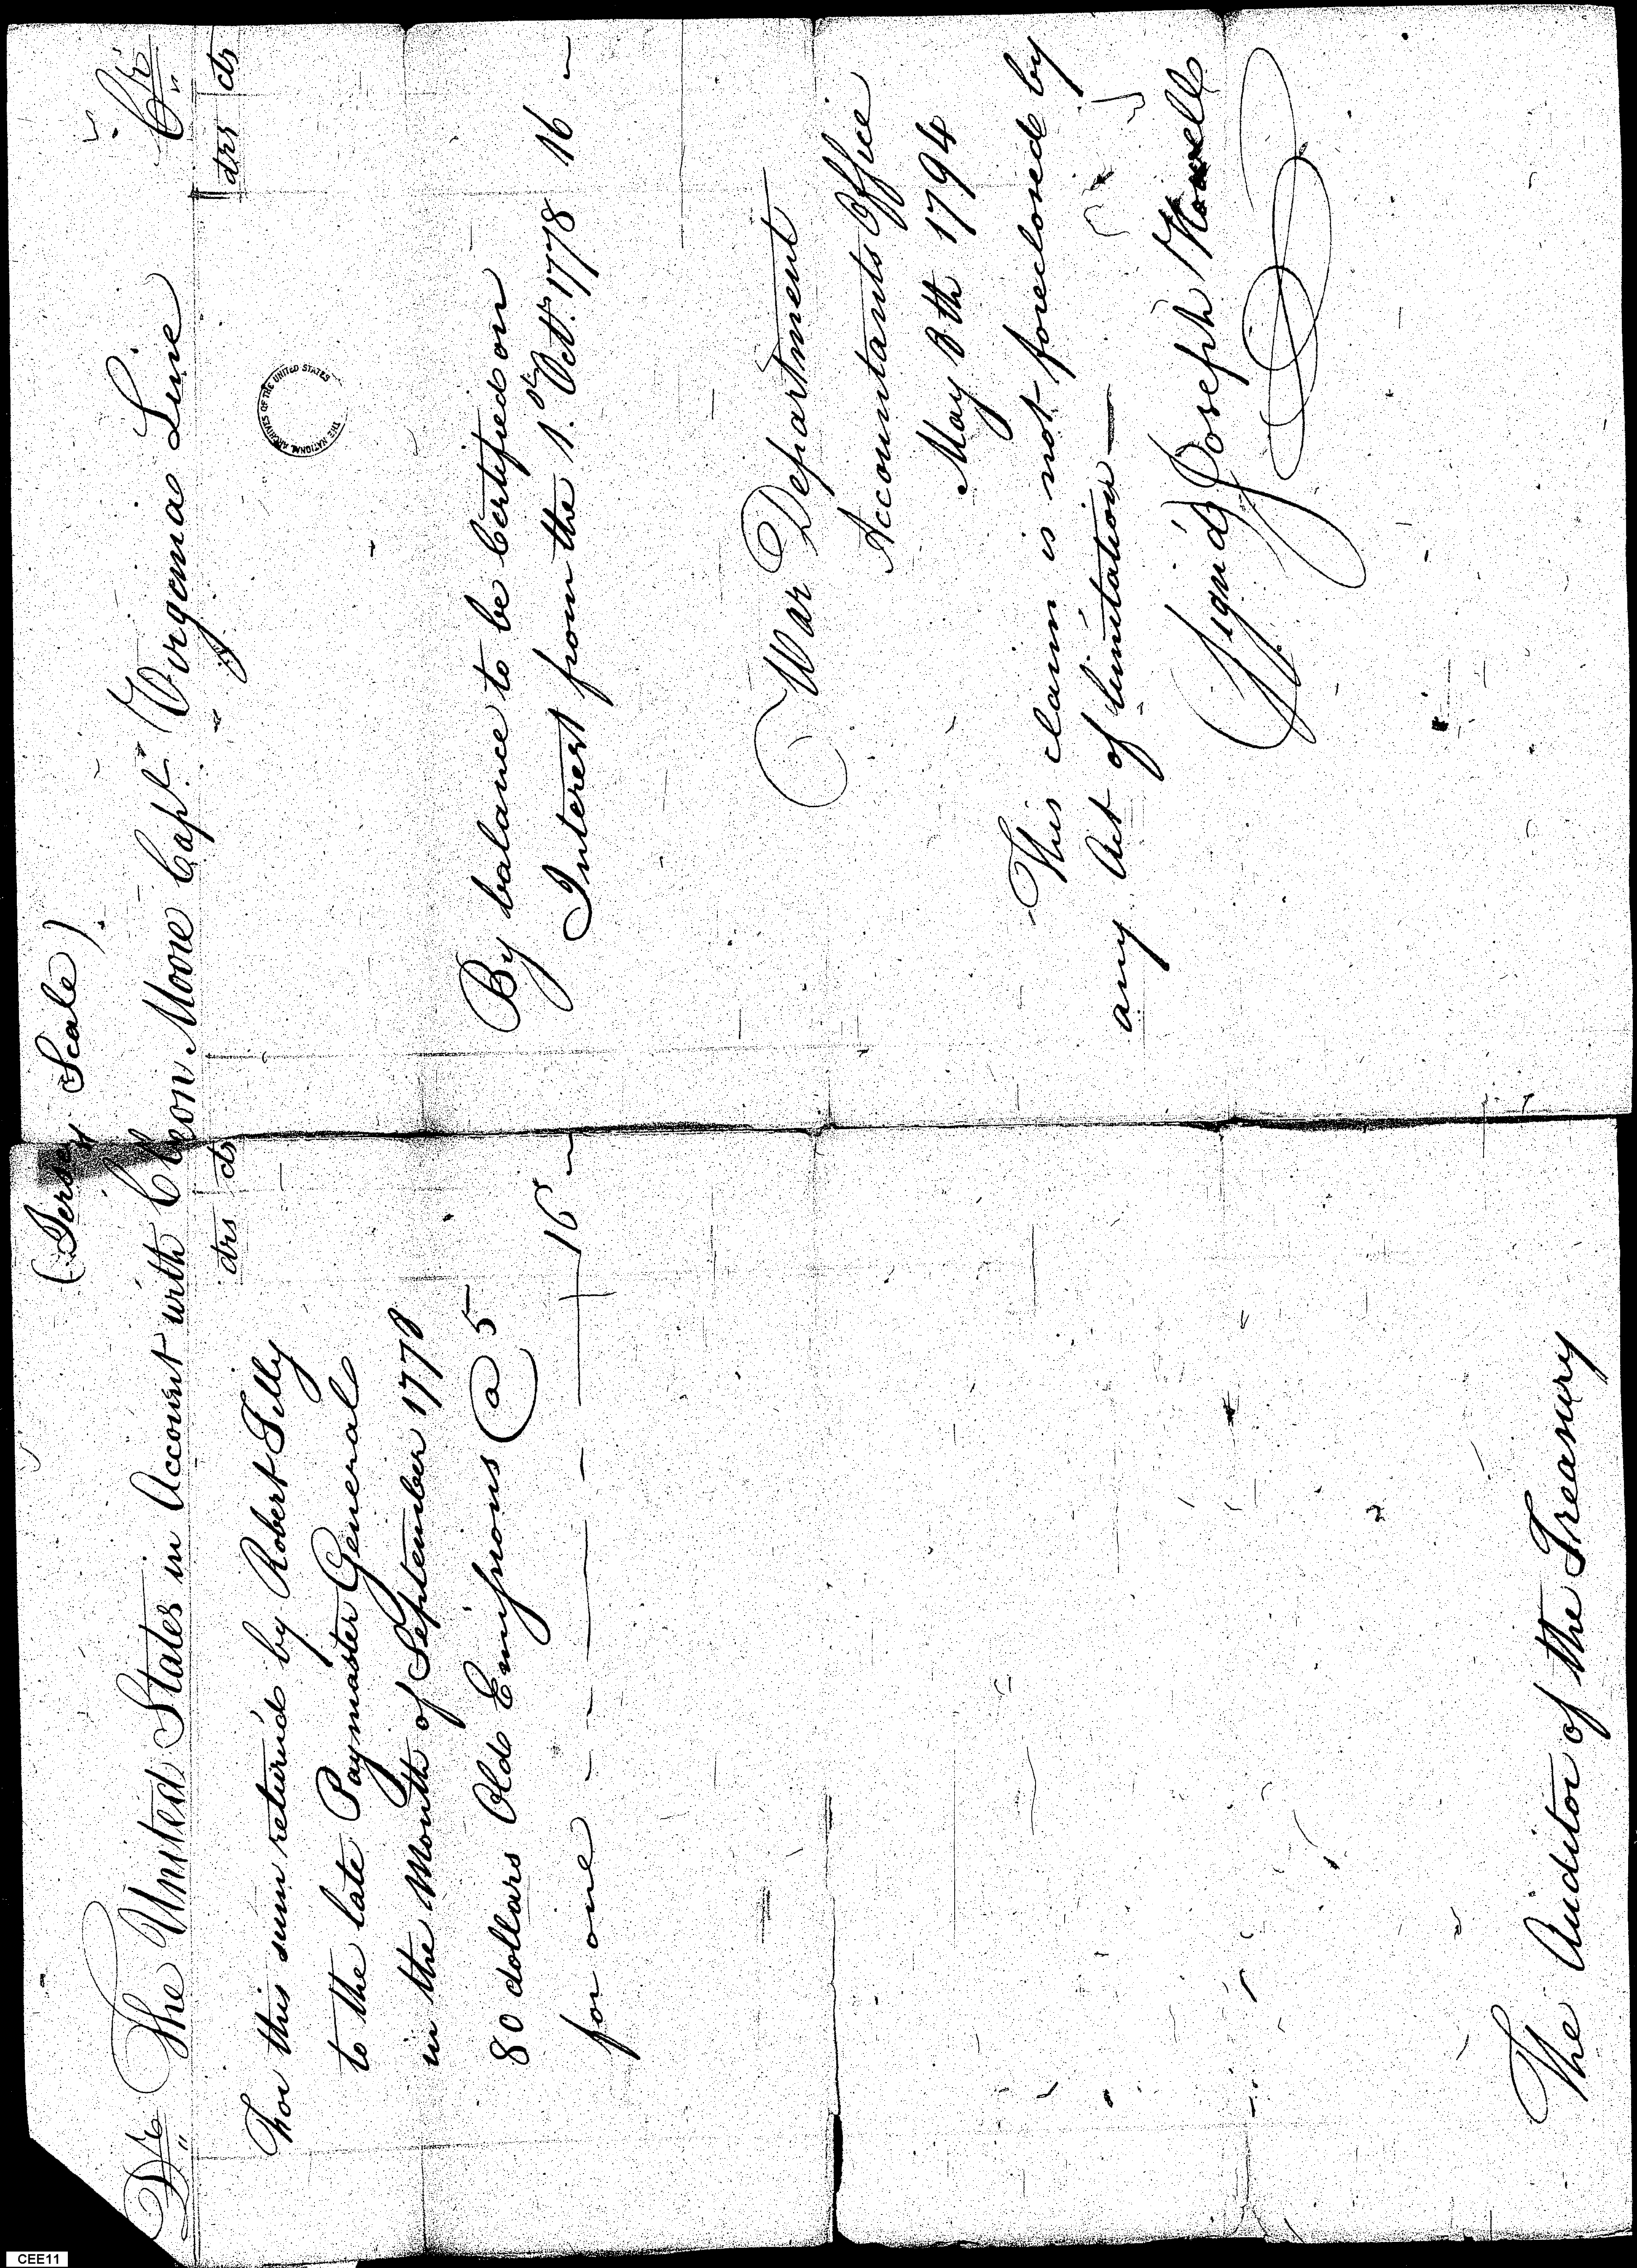 (Jersey Scale)
Dr The United States in Account with Cleon Moore Capt. Virginia Line Cr
drs cts
For this sum returned by Robert Tilly
to the late Paymaster General
in the Month of September 1778
80 dollars Old Emissions @ 5
for one 16
drs cts
By balance to be Certified on
Interest from the 1st Octr. 1778 16
War Department
Accountants Office
May 8th 1794
This claim is not foreclosed by
any Act of limitation
Sign'd Joseph Howell
The Auditor of the Treasury
THE NATIONAL ARCHIVES OF THE UNITED STATES
CEE11